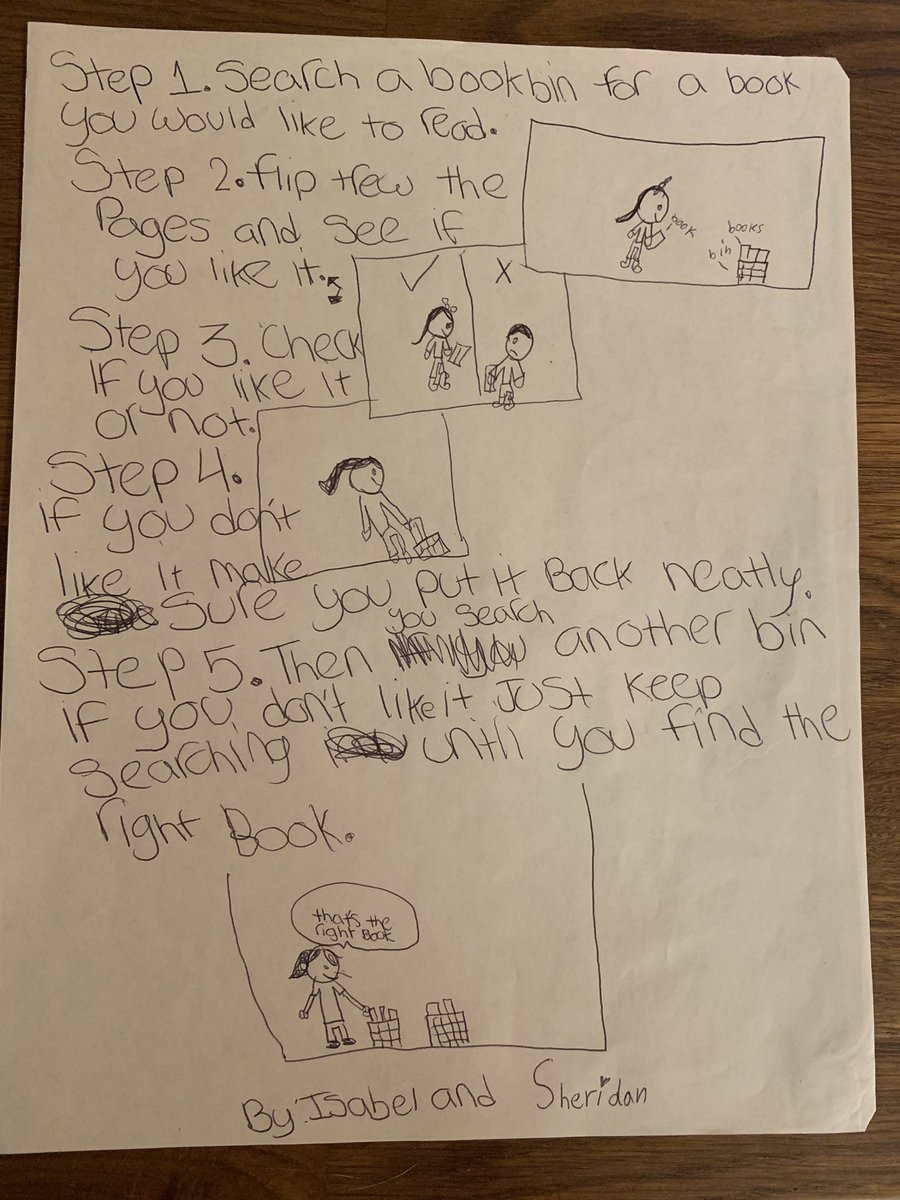 Step 1. Search a bookbin for a book
you would like to read.
Step 2. flip threw the
Pages and see if
you like it.
book
books
bin
✓ X
Step 3. Check
If you like it
or not.
Step 4.
if you don't
like it make
Sure you put it Back neatly.
you search
Step 5. Then another bin
if you don't like it Just keep
searching until you find the
right Book.
that's the
right Book
By: Isabel and Sheridan